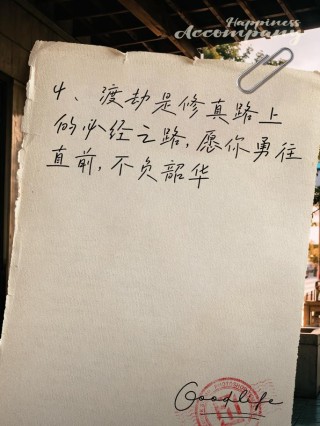 Happiness
Accompany
4、渡劫是修真路上
的必经之路，愿你勇往
直前，不负韶华
Good life